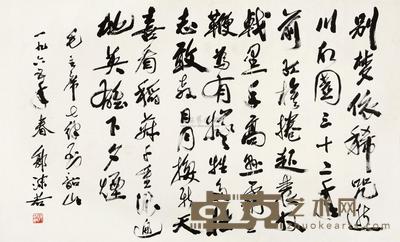 別夢依稀咒逝
川故園三十二年
前紅旗捲起農奴
戟黑手高懸霸主
鞭為有犧牲多壯
志敢教日月換新天
喜看稻菽千重浪遍
地英雄下夕煙
毛主席七律到韶山
一九六五年春 郭沫若
艺术网